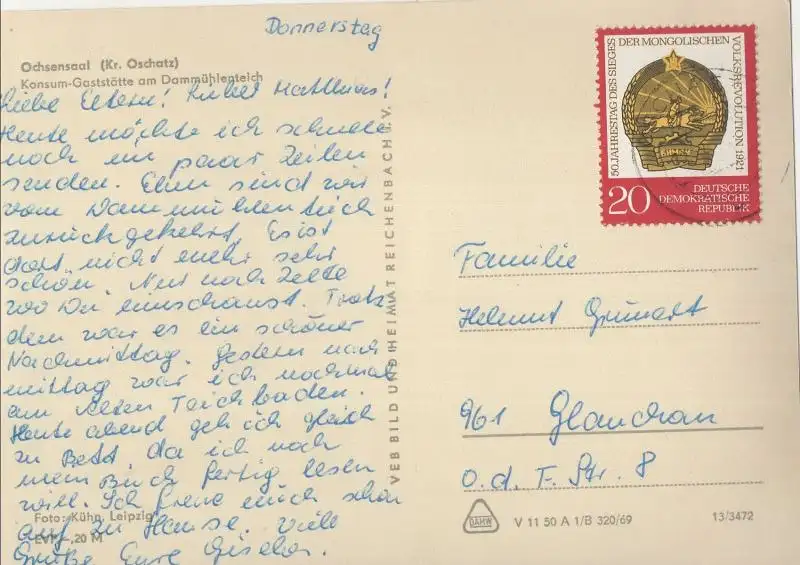 Donnerstag
Ochsensaal (Kr. Oschatz)
Konsum-Gaststätte am Dammühlenteich
Liebe Eltern! Lieber Matthias!
Heute möchte ich schnell
noch ein paar Zeilen
senden. Eben sind wir
vom Dammühlenteich
zurückgekehrt. Es ist
dort nicht mehr sehr
schön. Nur noch Zelte
wo Du hinschaust. Trotz-
dem war es ein schöner
Nachmittag. Gestern nach
mittag war ich nochmal
am Alten Teich baden.
Heute abend geh ich gleich
zu Bett, da ich noch
mein Buch fertig lesen
will. Ich freue mich schon
auf zu Hause. Viele
Grüße Eure Gisela.
Foto: Kühn, Leipzig
EVP -,20 M
VEB BILD UND HEIMAT REICHENBACH I. V.
50. JAHRESTAG DES SIEGES DER MONGOLISCHEN VOLKSREVOLUTION 1921
БНМАУ
20 DEUTSCHE
DEMOKRATISCHE
REPUBLIK
Familie
Helmut Grünert
961 Glauchau
O.d.F. Str. 8
DAHW V 11 50 A 1/B 320/69 13/3472